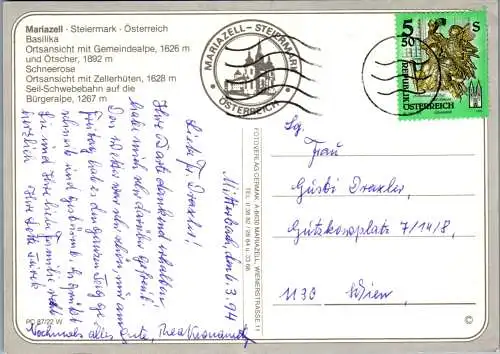 Mariazell · Steiermark · Österreich
Basilika
Ortsansicht mit Gemeindealpe, 1626 m
und Ötscher, 1892 m
Schneerose
Ortsansicht mit Zellerhüten, 1628 m
Seil-Schwebebahn auf die
Bürgeralpe, 1267 m
MARIAZELL - STEIERMARK
· ÖSTERREICH ·
5 50
S
REPUBLIK
ÖSTERREICH
Mitterbach, dm 6.3.94
Liebe Fr. Draxler!
Ihre Karte dankend erhalten
habe mich sehr darüber gefreut.
Das Wetter war sehr schön, nur am
Freitag hat es den ganzen Tag ge-
schneit und gestürmt. Es grüßt
Sie und Ihre liebe Familie
herzlich Ihre
Nochmals alles Gute,
PC 87/22 W
FOTOVERLAG GERMAK, A-8630 MARIAZELL, WIENERSTRASSE 11
Sg.
Frau
Gusti Draxler
Gützkowplatz 7/14/8,
1130 Wien,
©